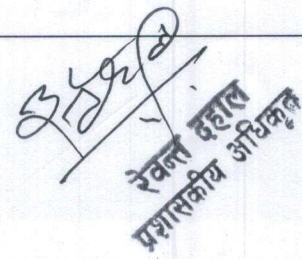 रेवन्त दहाल
प्रशासकीय अधिकृत